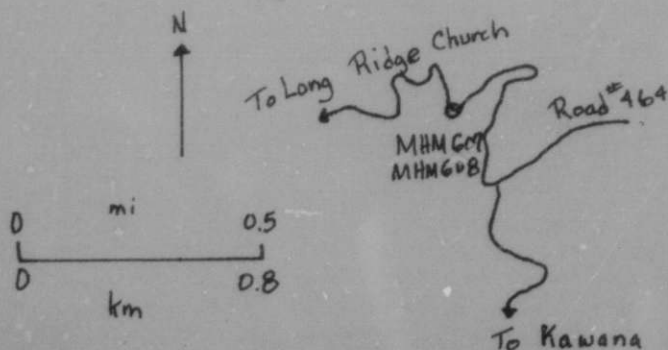 N
To Long Ridge Church
Road #464
MHM607
MHM608
mi
0 0.5
0 0.8
km
To Kawana